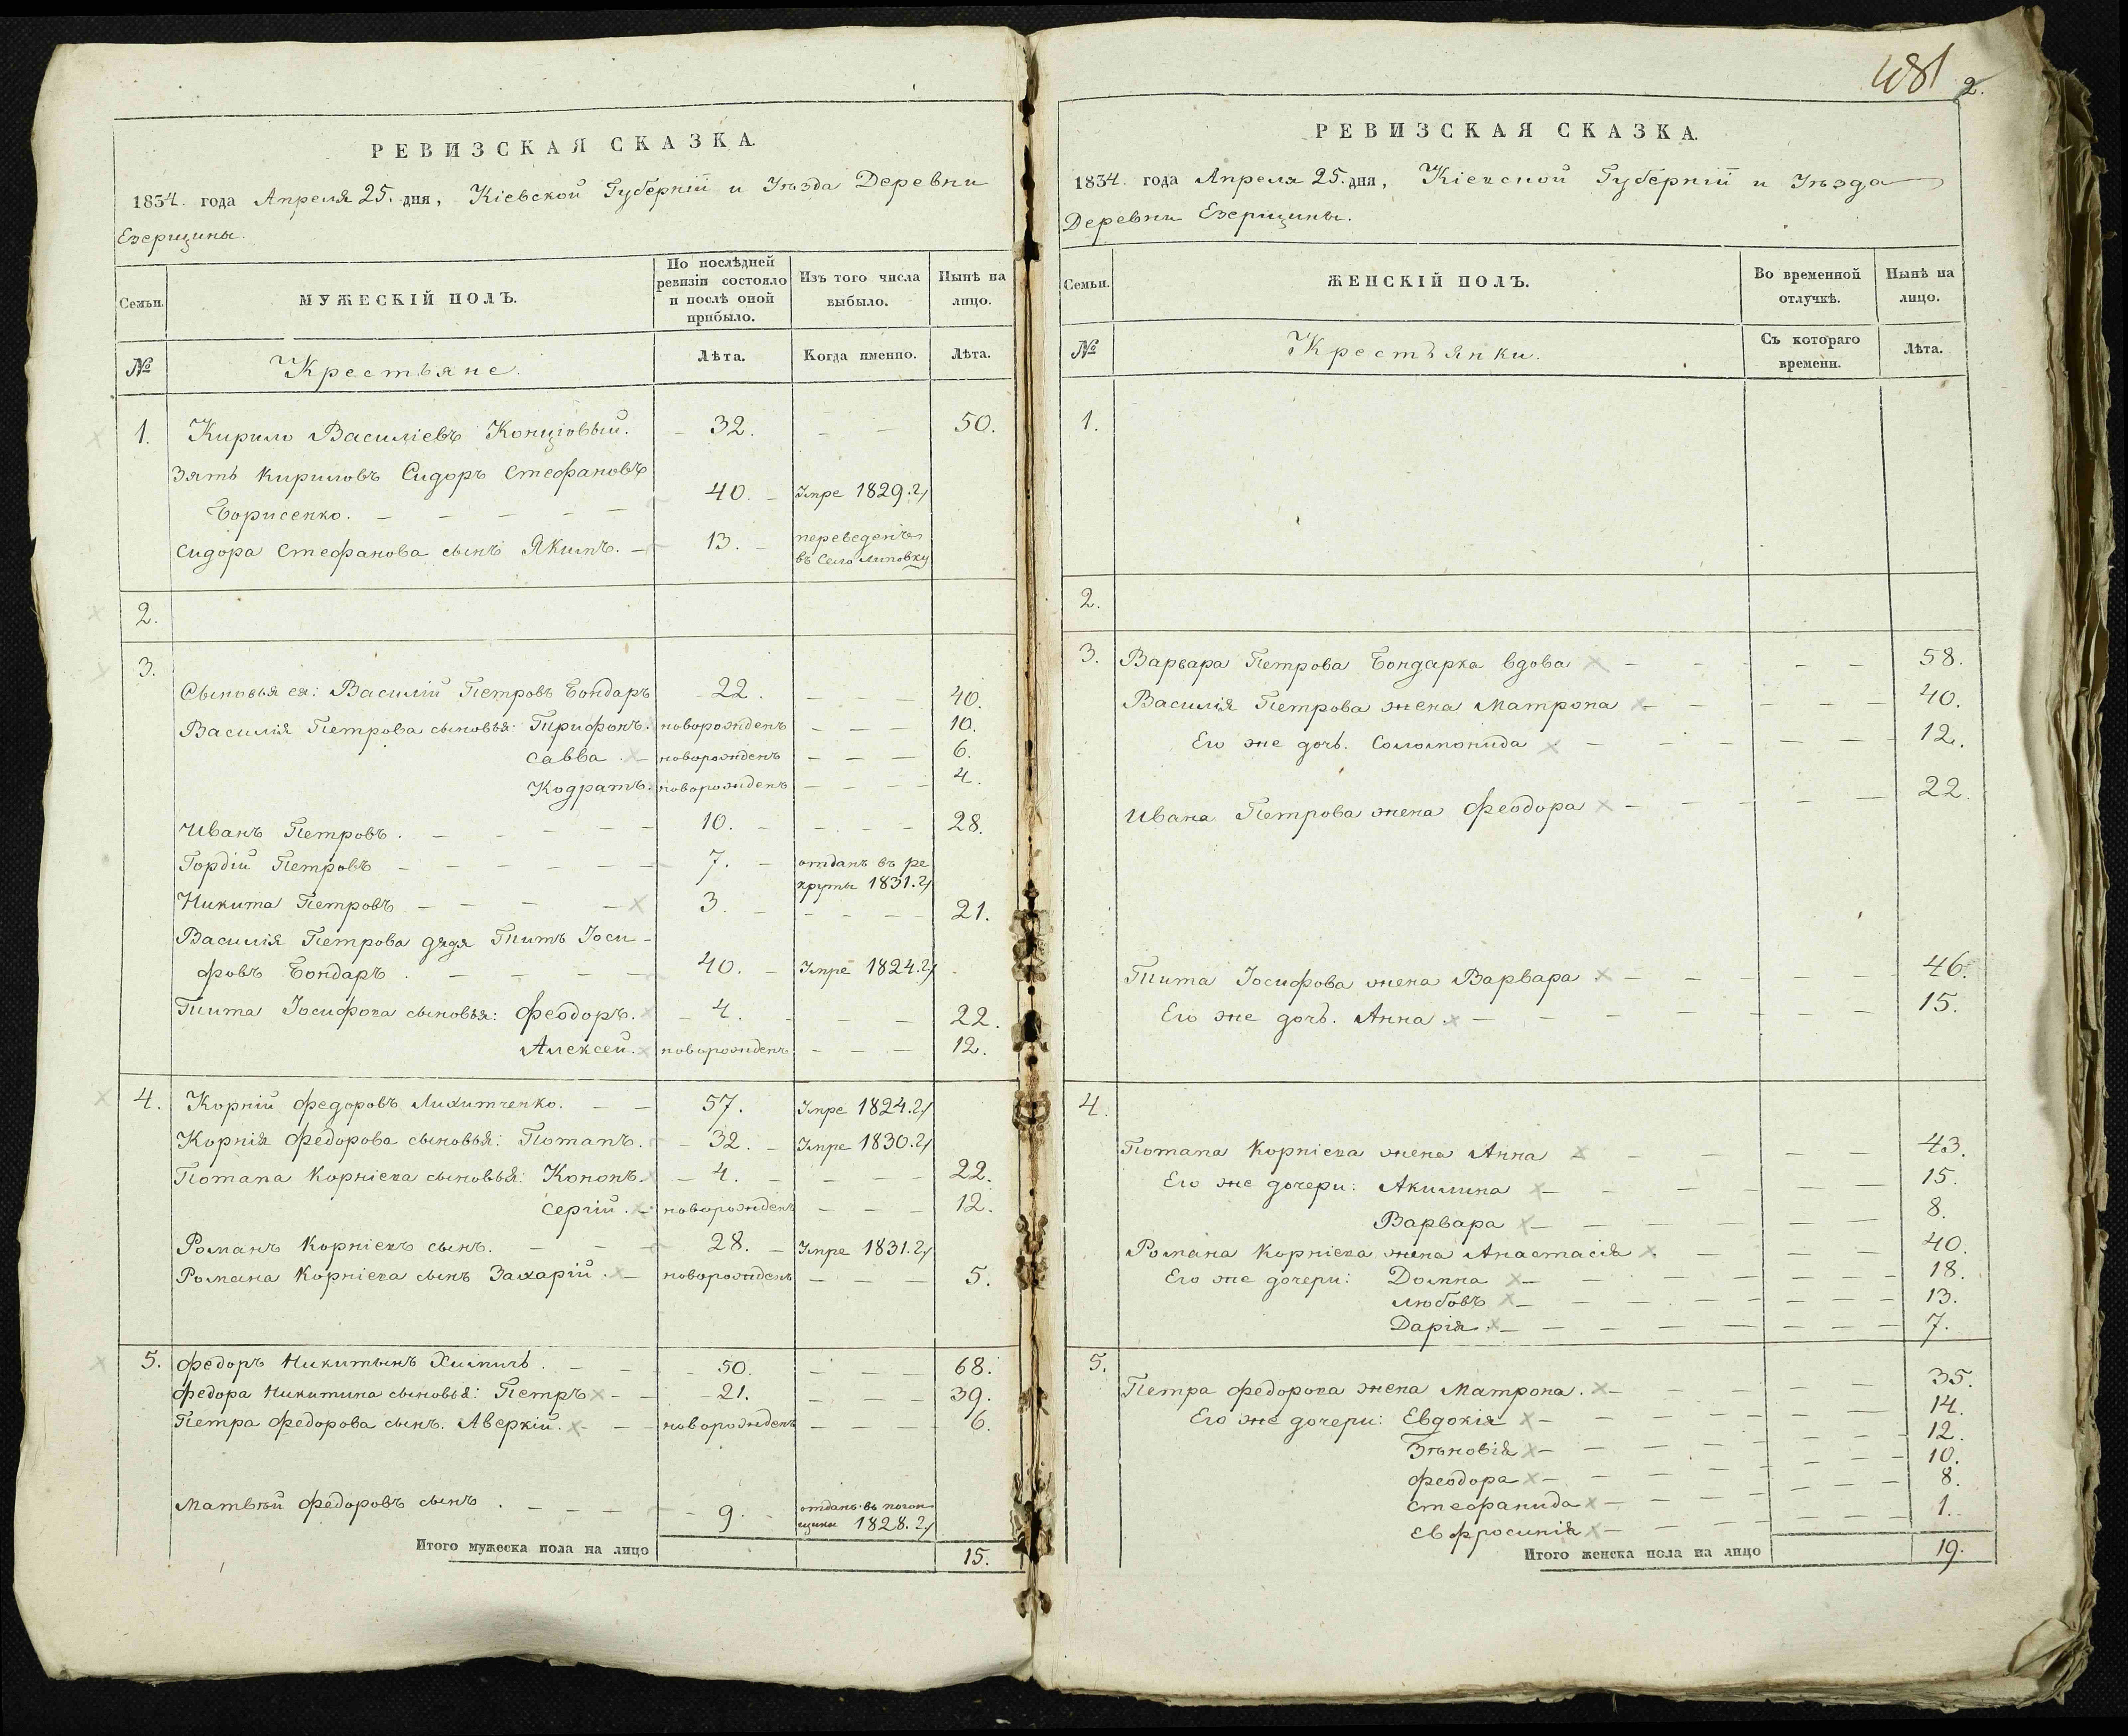 РЕВИЗСКАЯ СКАЗКА.
1834. года Апреля 25. дня, Кіевской Губерніи и Уѣзда Деревни
Езерщины.
Семьи.
МУЖЕСКІЙ ПОЛЪ.
По послѣдней ревизіи состояло и послѣ оной прибыло.
Изъ того числа выбыло.
Нынѣ на лицо.
№ Крестьяне. Лѣта. Когда именно. Лѣта.
1. Кирило Василіевъ Концовый. 32. — — 50.
Зять Кириловъ Сидоръ Стефановъ
Борисенко. — — — — — 40. — Умре 1829. г.
Сидора Стефанова сынъ Якимъ. — 13. — переведенъ
въ село Липовку
2.
3.
Сыновья ея: Василій Петровъ Бондаръ 22. — — — 40.
Василія Петрова сыновья: Трифонъ. новорожденъ — — — 10.
Савва. — новорожденъ — — — 6.
Кодратъ. новорожденъ — — — — 4.
Иванъ Петровъ. — — — — — 10. — — — — 28.
Гордій Петровъ — — — — — 7. — отданъ въ ре
круты 1831. г.
Никита Петровъ — — — — 3. — — — — — 21.
Василія Петрова дядя Титъ Іоси-
фовъ Бондаръ. — — — — 40. — Умре 1824. г.
Тита Іосифова сыновья: Феодоръ. 4. — — — 22.
Алексей. новорожденъ — — — 12.
4. Корній Федоровъ Лихитченко. — — 57. Умре 1824. г.
Корнія Федорова сыновья: Потапъ. 32. — Умре 1830. г.
Потапа Корніева сыновья: Кононъ. 4. — — — — — 22.
Сергій. — новорожденъ — — — 12.
Романъ Корніевъ сынъ. — — — 28. — Умре 1831. г.
Романа Корніева сынъ Захарій. — новорожденъ — — — 5.
5. Федоръ Никитынъ Химичъ. — — 50. — — — 68.
Федора Никитина сыновья: Петръ — — 21. — — — 39.
Петра Федорова сынъ. Аверкій. — — новорожденъ — — — — 6.
Матвѣй Федоровъ сынъ. — — — — 9. — отданъ въ погон
щики 1828. г.
Итого мужеска пола на лицо 15.
481 2.
РЕВИЗСКАЯ СКАЗКА.
1834. года Апреля 25. дня, Кіевской Губерніи и Уѣзда
Деревни Езерщины.
Семьи.
ЖЕНСКІЙ ПОЛЪ.
Во временной отлучкѣ.
Нынѣ на лицо.
№ Крестьянки. Съ котораго времени. Лѣта.
1.
2.
3. Варвара Петрова Бондарка вдова — — — — — 58.
Василія Петрова жена Матрона — — — — — — 40.
Его же дочь. Соломонида — — — — — — 12.
Ивана Петрова жена Феодора — — — — — 22.
Тита Іосифова жена Варвара. — — — — — — 46.
Его же дочь. Анна. — — — — — — — — 15.
4.
Потапа Корніева жена Анна — — — — — 43.
Его же дочери: Акилина — — — — — — 15.
Варвара — — — — — — — 8.
Романа Корніева жена Анастасія. — — — — 40.
Его же дочери: Домна — — — — — — — — 18.
Любовъ — — — — — — — — — 13.
Дарія. — — — — — — — — — 7.
5.
Петра Федорова жена Матрона. — — — — — 35.
Его же дочери: Евдокія — — — — — — — 14.
Зѣновія — — — — — — — — 12.
Феодора — — — — — — — — 10.
Стефанида — — — — — — — 8.
Евфросинія — — — — — — — 1.
Итого женска пола на лицо 19.